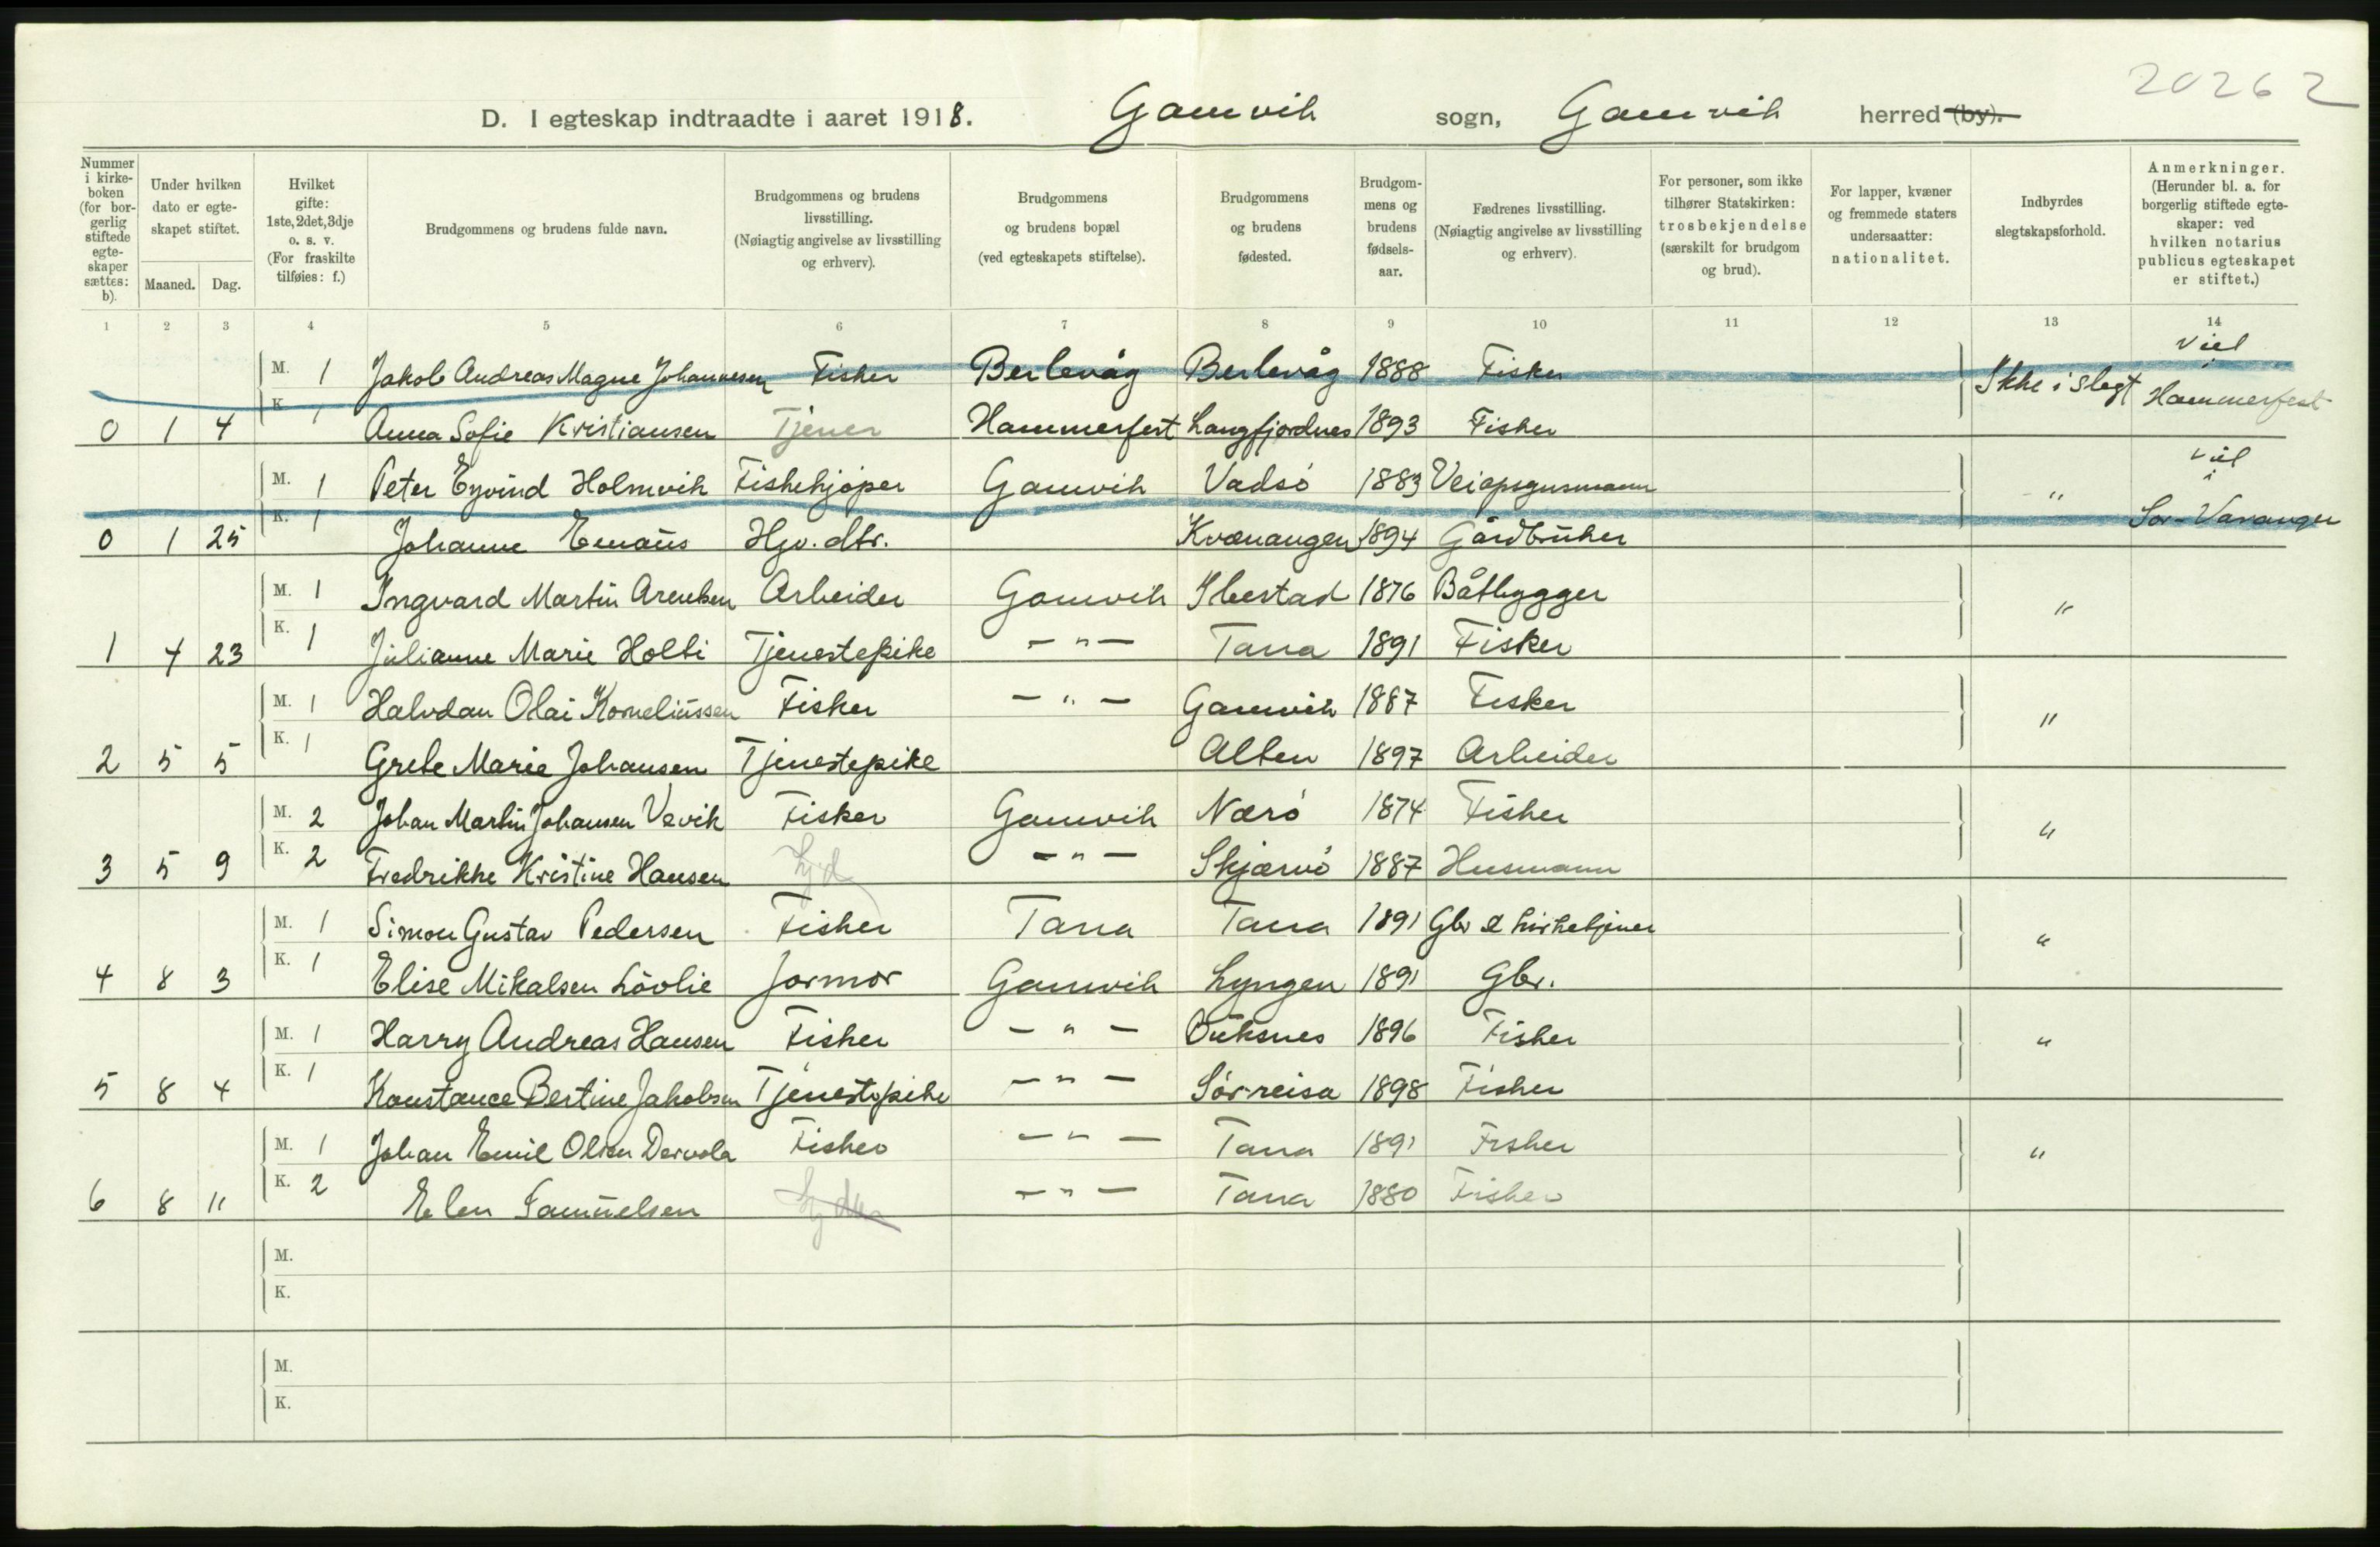 20262
D. I egteskap indtraadte i aaret 1918. Gamvik sogn, Gamvik herred (by).
Nummer i kirkeboken (for borgerlig stiftede egteskaper sættes: b). Under hvilken dato er egteskapet stiftet. Maaned. Dag. Hvilket gifte: 1ste, 2det, 3dje o. s. v. (For fraskilte tilføies: f.) Brudgommens og brudens fulde navn. Brudgommens og brudens livsstilling. (Nøiagtig angivelse av livsstilling og erhverv). Brudgommens og brudens bopæl (ved egteskapets stiftelse). Brudgommens og brudens fødested. Brudgommens og brudens fødselsaar. Fædrenes livsstilling. (Nøiagtig angivelse av livsstilling og erhverv). For personer, som ikke tilhører Statskirken: trosbekjendelse (særskilt for brudgom og brud). For lapper, kvæner og fremmede staters undersaatter: nationalitet. Indbyrdes slegtskapsforhold. Anmerkninger. (Herunder bl. a. for borgerlig stiftede egteskaper: ved hvilken notarius publicus egteskapet er stiftet.)
1 2 3 4 5 6 7 8 9 10 11 12 13 14
M. 1 Jakob Andreas Magne Johannesen Fisker Berlevåg Berlevåg 1888 Fisker Ikke i slegt Viel i Hammerfest
0 1 4 K. 1 Anna Sofie Kristiansen Tjener Hammerfest Langfjordnes 1893 Fisker
M. 1 Peter Eyvind Holmvik Fiskekjøper Gamvik Vadsö 1883 Veiopsynsmann " viel i Sør-Varanger
0 1 25 K. 1 Johanne Emaus Hjv. dtr. Kvænangen 1894 Gårdbruker
M. 1 Ingvard Martin Arentsen Arbeider Gamvik Ibestad 1876 Båtbygger "
1 4 23 K. 1 Julianne Marie Holti Tjenestepike — " — Tana 1891 Fisker
M. 1 Halvdan Olai Korneliussen Fisker — " — Gamvik 1887 Fisker "
2 5 5 K. 1 Grete Marie Johansen Tjenestepike Alten 1897 Arbeider
M. 2 Johan Martin Johansen Vevik Fisker Gamvik Nærö 1874 Fisker "
3 5 9 K. 2 Fredrikke Kristine Hansen — " — Skjærvö 1887 Husmann
M. 1 Simon Gustav Pedersen Fisker Tana Tana 1891 Gbr & kirketjener "
4 8 3 K. 1 Elise Mikalsen Lövlie Jormor Gamvik Lyngen 1891 Gbr.
M. 1 Harry Andreas Hansen Fisker — " — Buksnes 1896 Fisker "
5 8 4 K. 1 Konstance Bertine Jakobsen Tjenestepike — " — Sörreisa 1898 Fisker
M. 1 Johan Emil Olsen Dervola Fisker — " — Tana 1891 Fisker "
6 8 11 K. 2 Elen Samuelsen — " — Tana 1880 Fisker
M.
K.
M.
K.